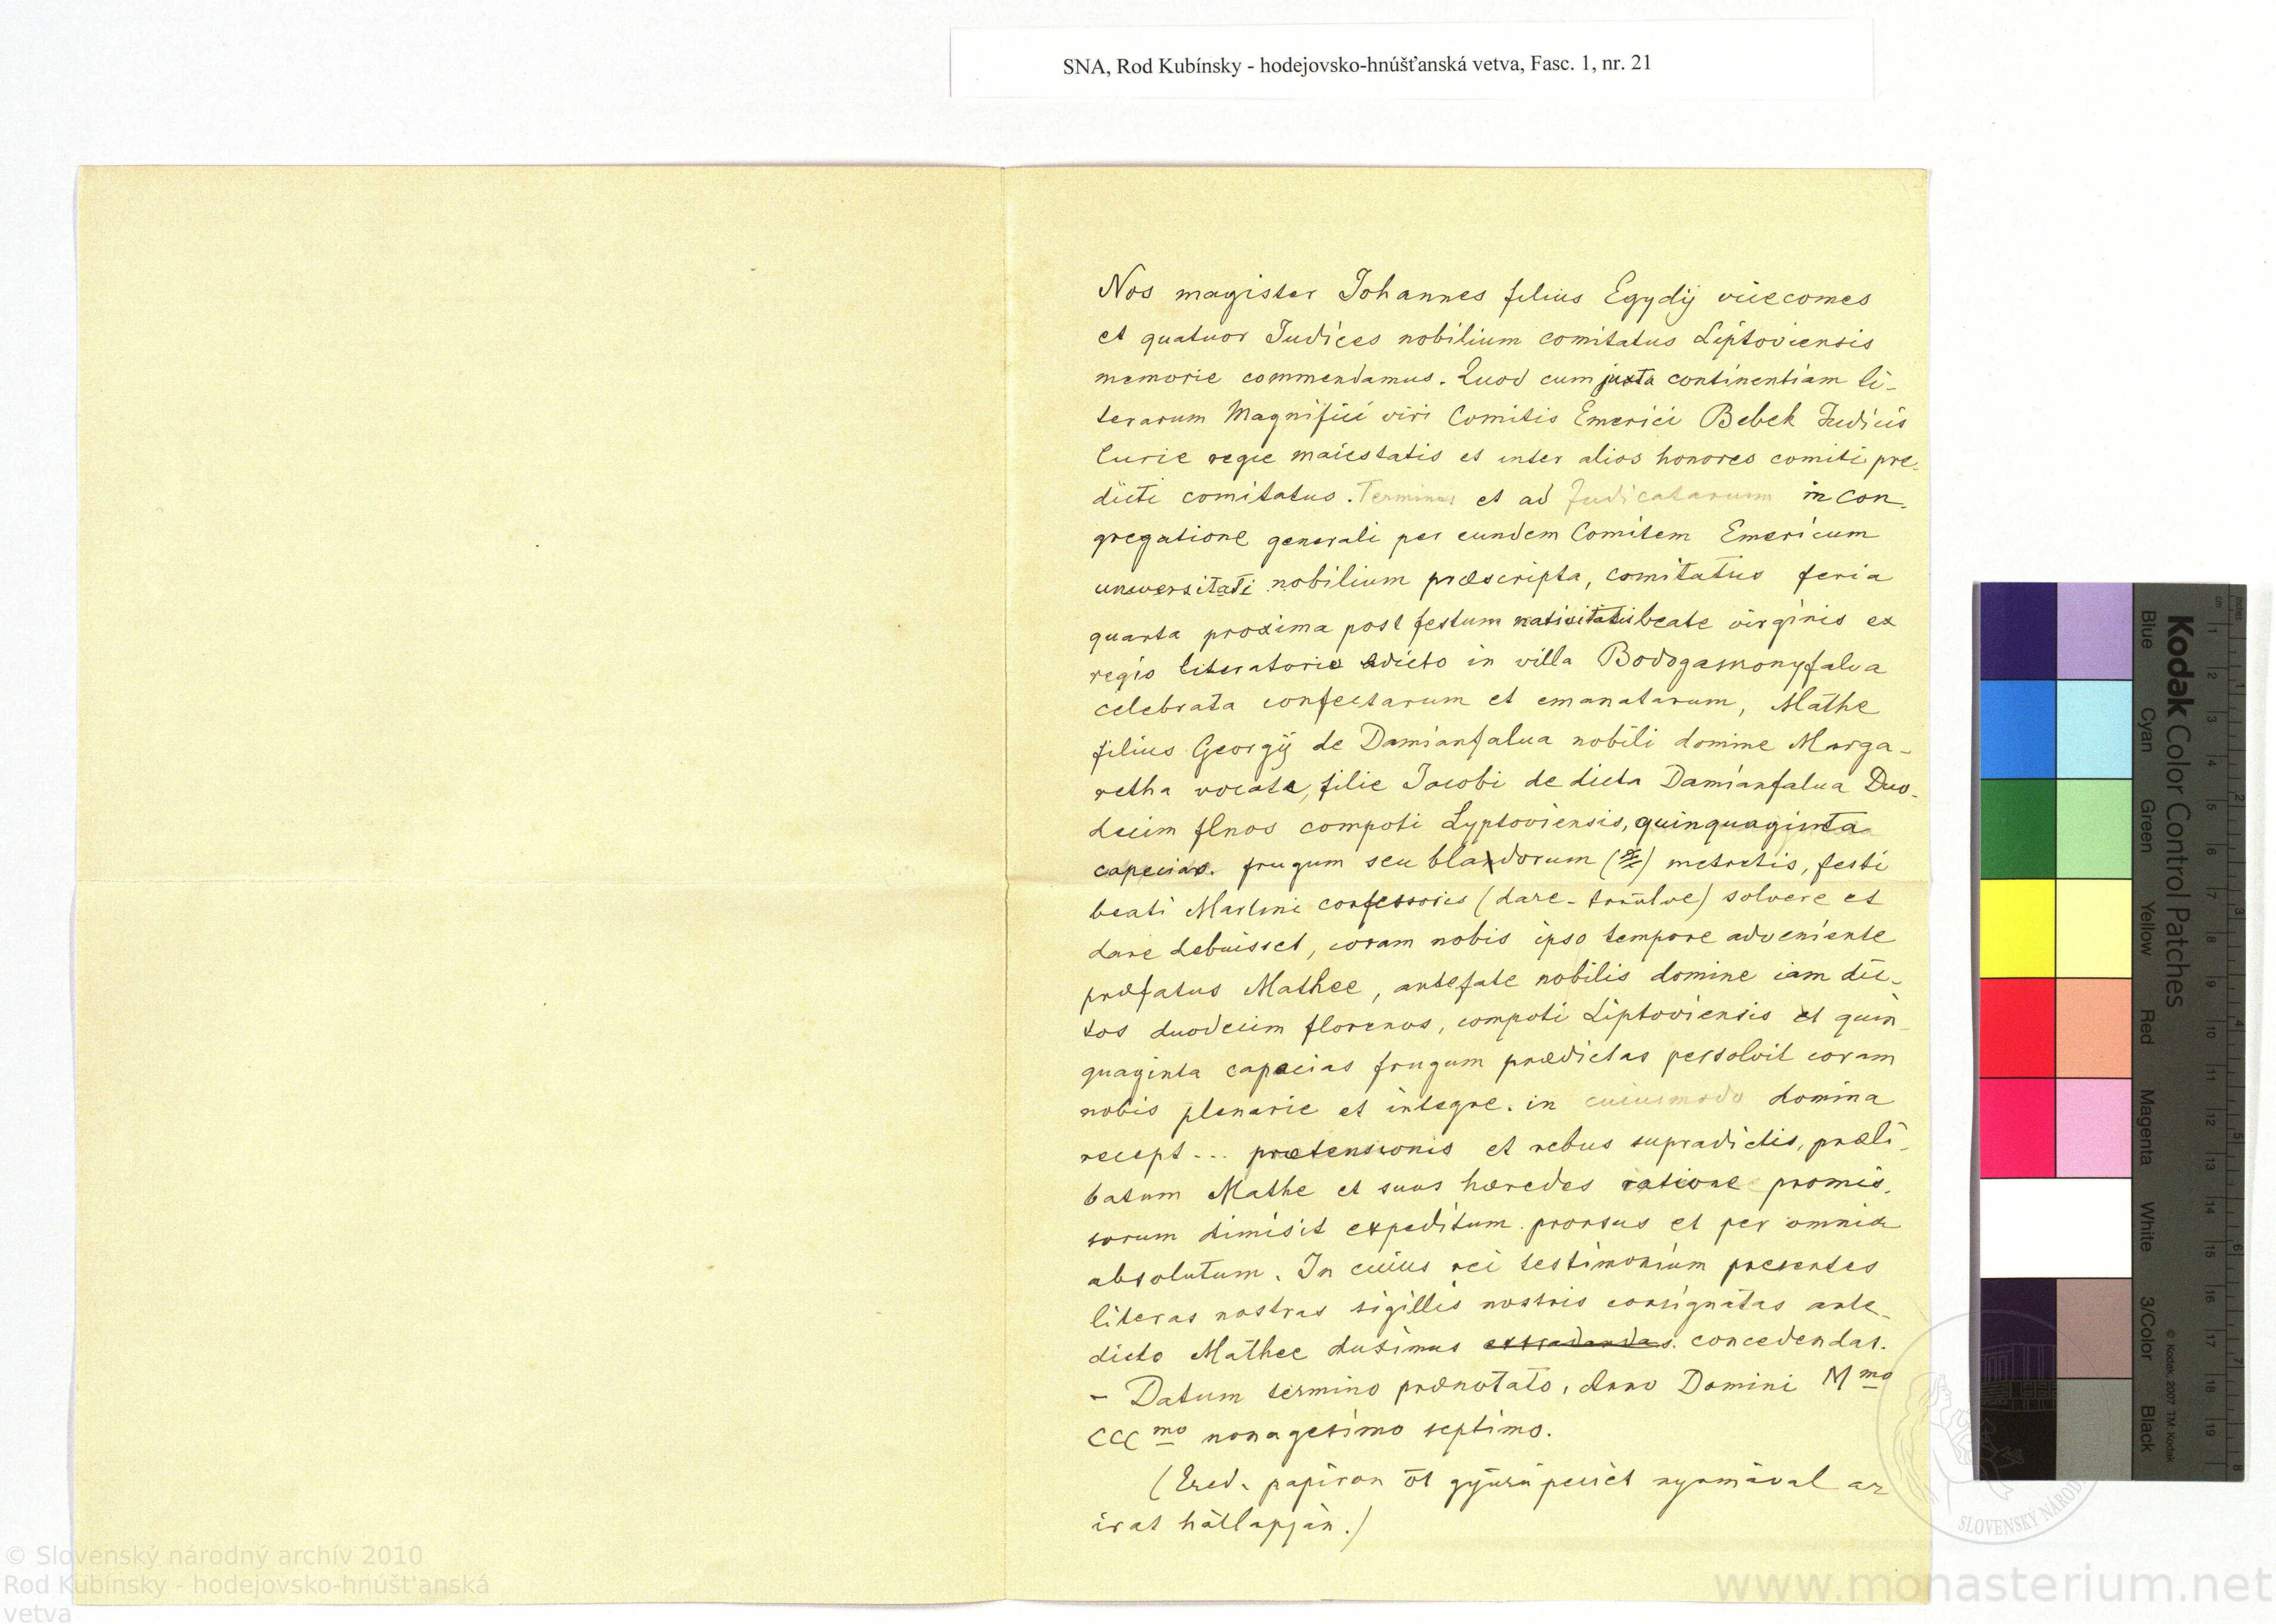 SNA, Rod Kubínsky - hodejovsko-hnúšťanská vetva, Fasc. 1, nr. 21
Nos magister Johannes filius Egydij vicecomes
et quatuor Judices nobilium comitatus Liptoviensis
memorie commendamus. Quod cum juxta continentiam li-
terarum Magnifici viri Comitis Emerici Bebek Judicis
Curie regie maiestatis et inter alios honores comiti pre-
dicti comitatus. Terminus et ad Judicatarum in con-
gregatione generali per eundem Comitem Emericum
universitati nobilium præscripta, comitatus feria
quarta proxima post festum nativitatis beate virginis ex
regio literatorio edicto in villa Bodogasszonyfalva
celebrata confectarum et emanatarum, Mathe
filius Georgij de Damianfalua nobili domine Marga-
retha vocate, filie Jacobi de dicta Damianfalua Duo-
decim flnos compoti Lyptoviensis, quinquaginta
capecias. frugum seu bladorum metretis, festi
beati Martini confessoris (dare - ) solvere et
dare debuisset, coram nobis ipso tempore adveniente
præfatus Mathee, antefate nobilis domine iam dic-
tos duodecim florenos, compoti Liptoviensis et quin-
quaginta capecias frugum prædictas persolvit coram
nobis plenarie et integre. in cuiusmodo domina
recept... prætensionis et rebus supradictis, præli-
batum Mathe et suos hæredes ratione promis-
sorum dimisit expeditum prorsus et per omnia
absolutum. In cuius rei testimonium presentes
literas nostras sigillis nostris consignatas ante-
dicto Mathee duximus extradandas. concedendas.
- Datum termino prænotato, Anno Domini M mo
CCC mo nonagesimo septimo.
(Ered. papiron öt gyűrü pecsét nyomával az
irat hátlapján.)
Kodak Color Control Patches
Blue Cyan Green Yellow Red Magenta White 3/Color Black
© Kodak, 2007 TM: Kodak
SLOVENSKÝ NÁROD
© Slovenský národný archív 2010
Rod Kubínsky - hodejovsko-hnúšt'anská
vetva
www.monasterium.net